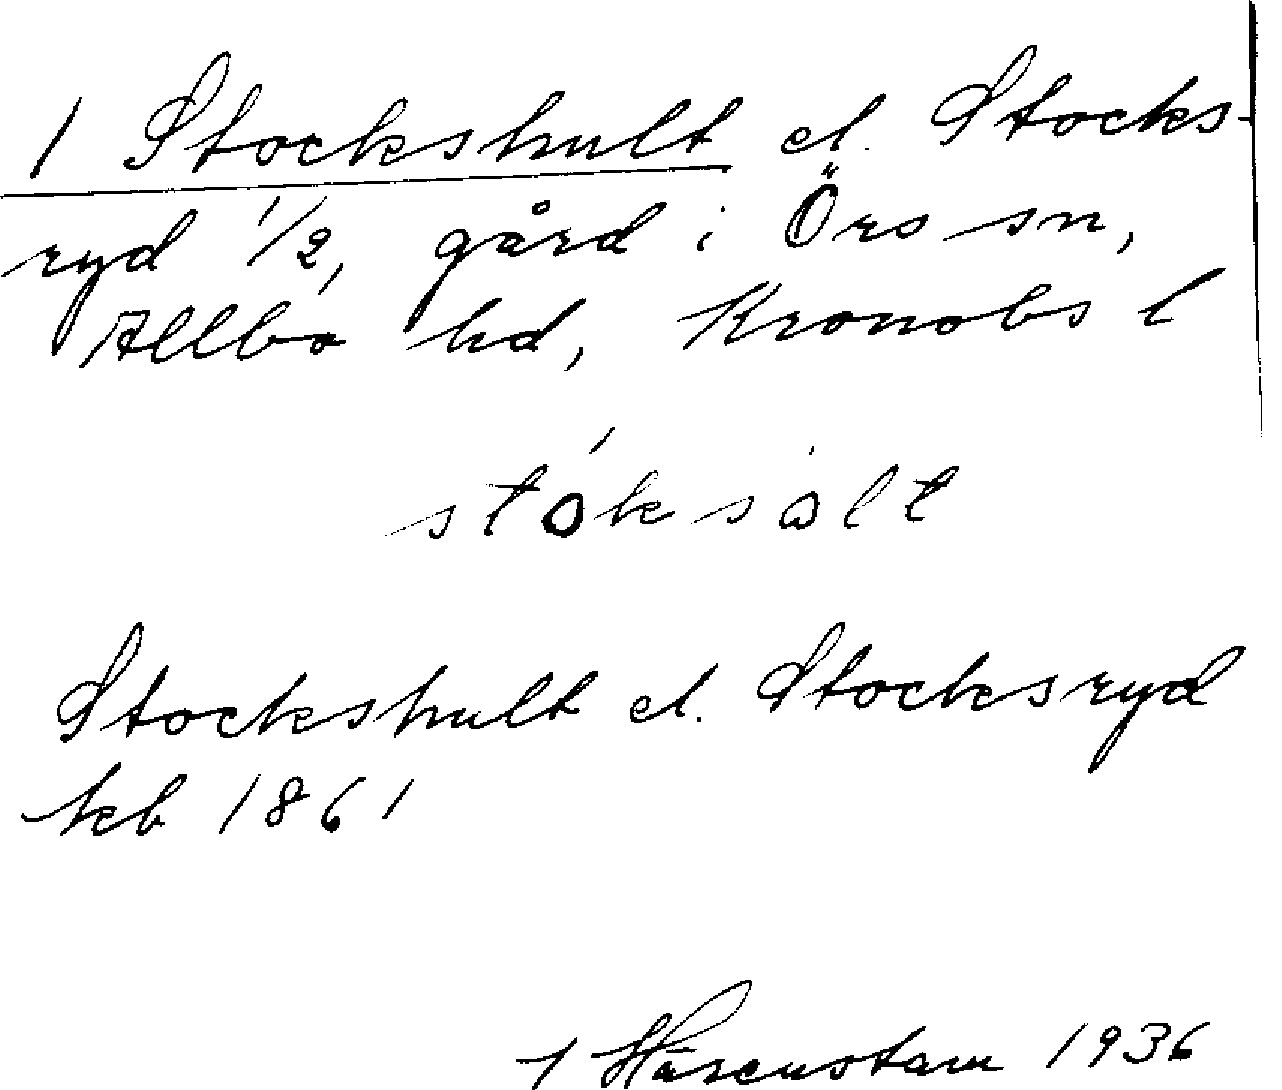 1 Stockshult el. Stocks-
ryd 1/2, gård i Örs sn,
Allbo hd, Kronobs l
stóksàlt
Stockshult el. Stocksryd
kb 1861
1936